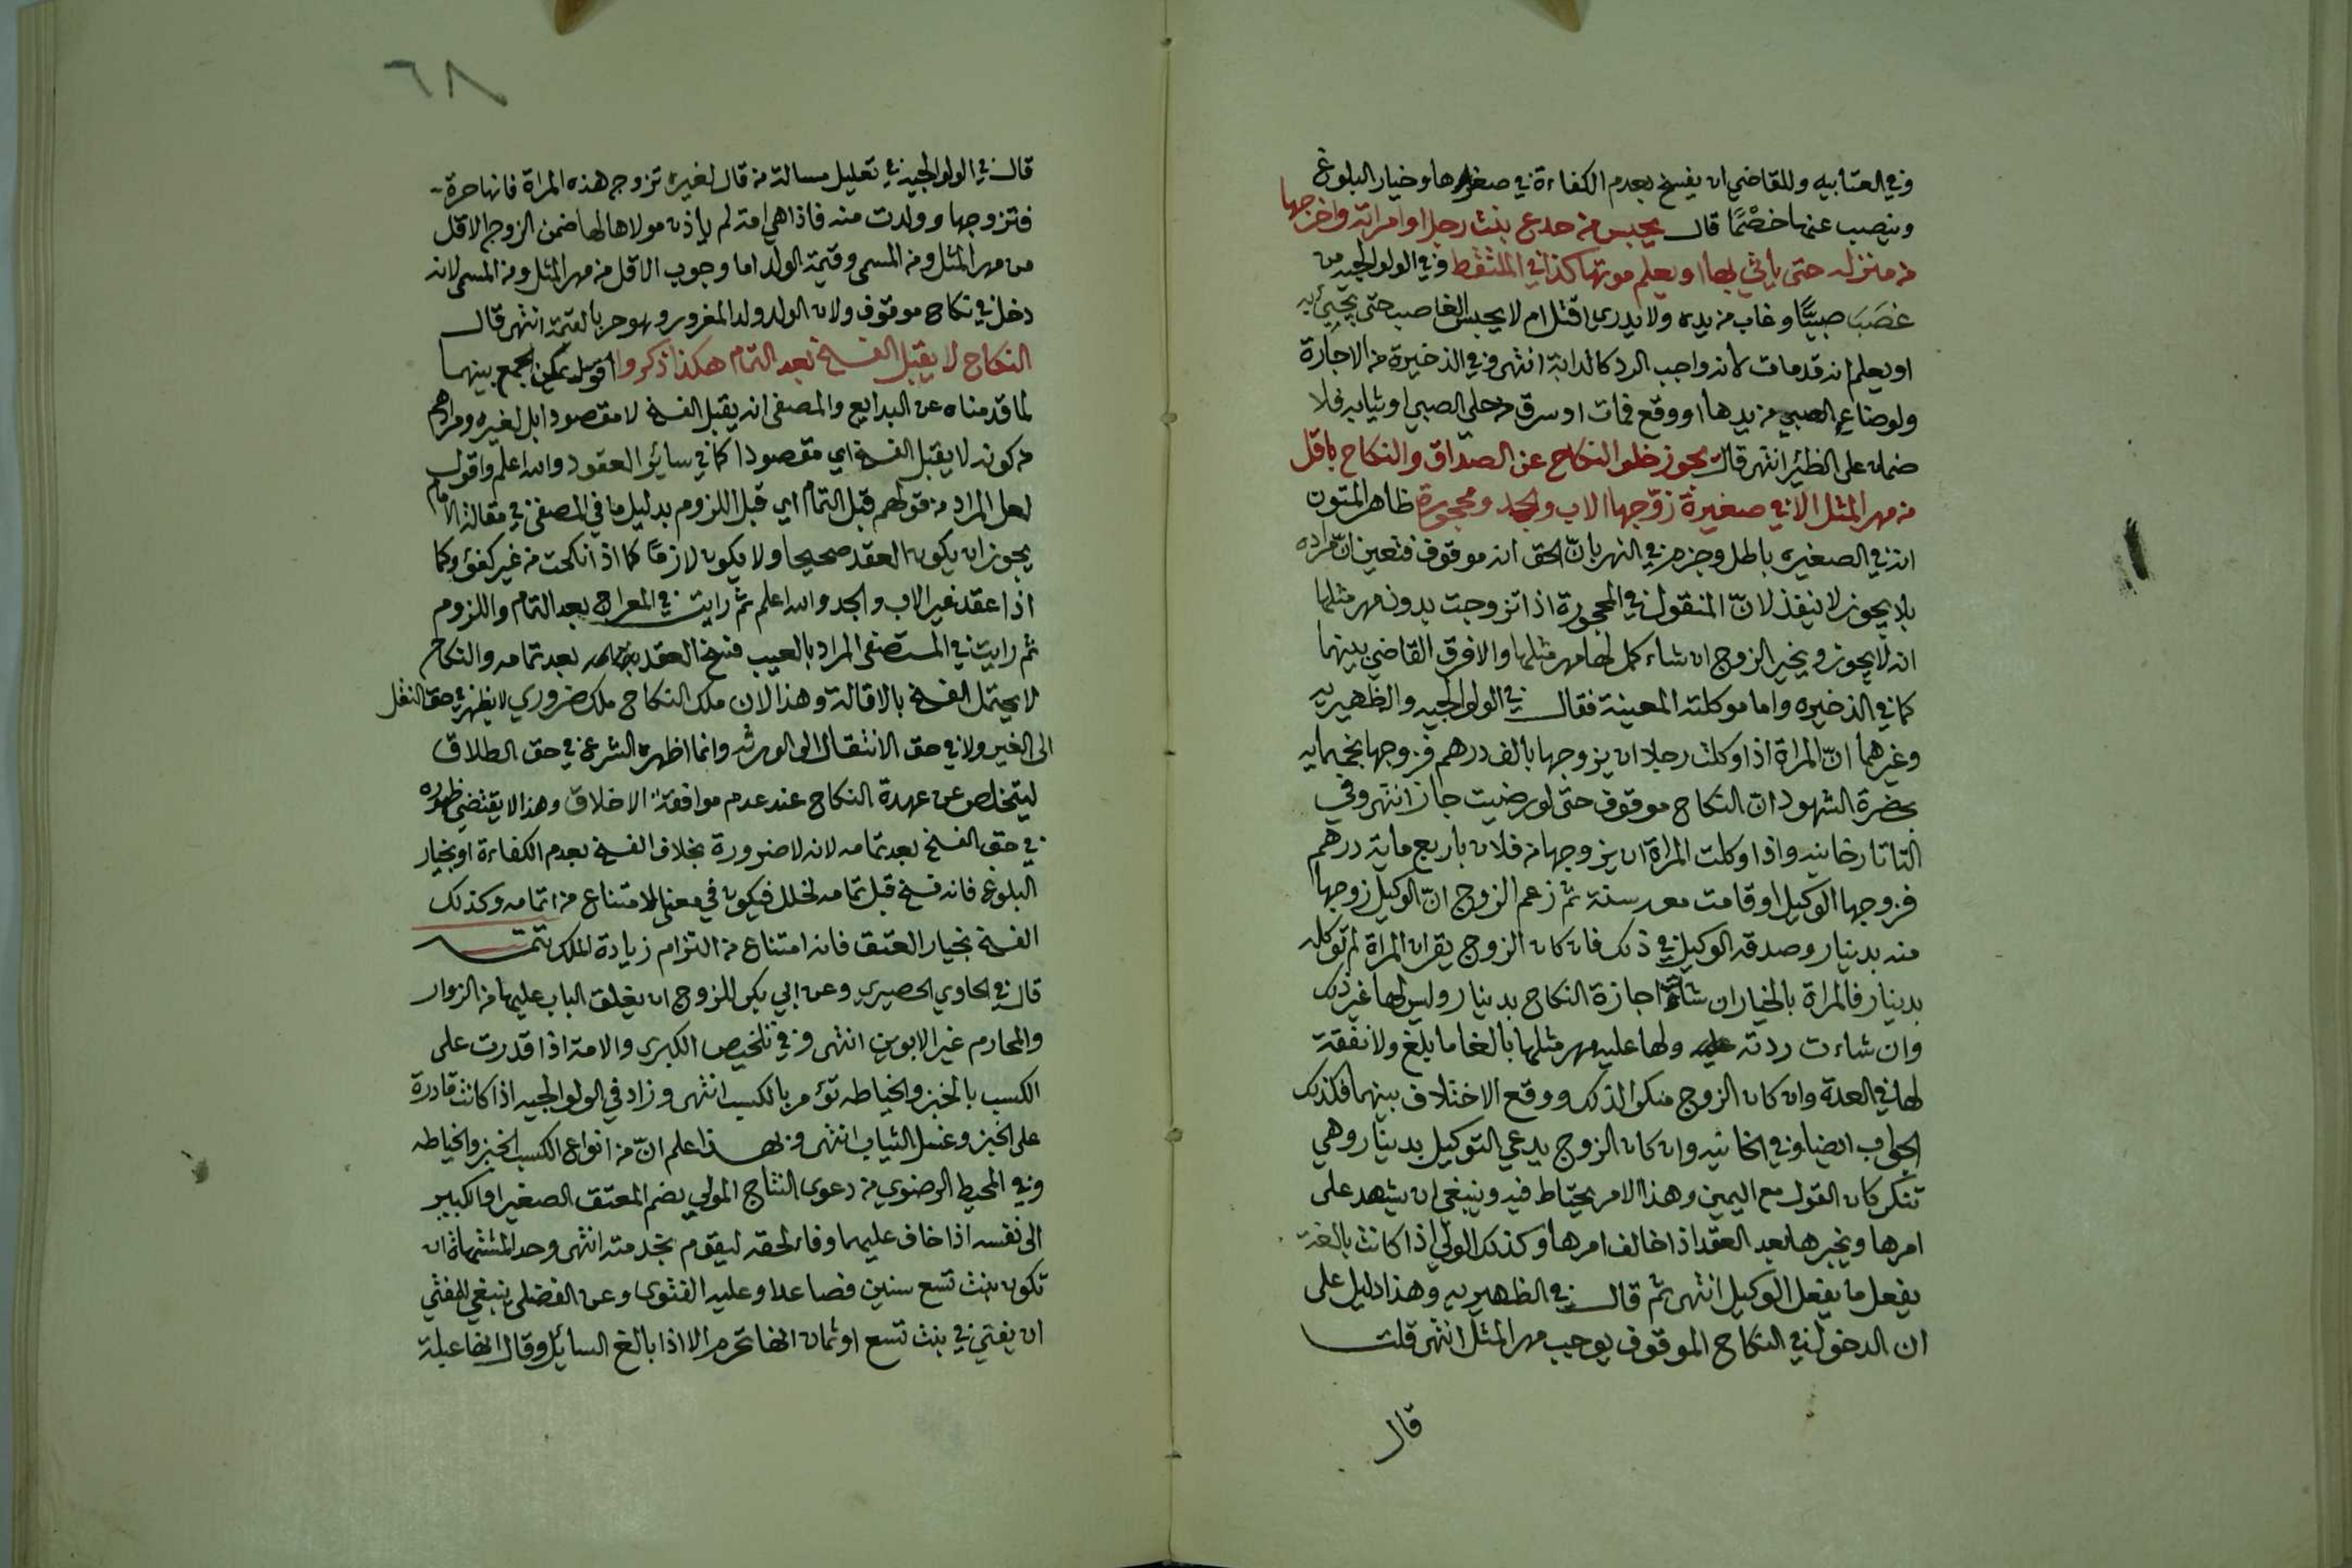 وفي العتابيه وللقاضي ان يفسخ بعدم الكفاءة في صغرها وخيار البلوغ
وينصب عنها خصمًا قال يحبس من خدع بنت رجل او امراته واخرجها
من منزله حتى ياتي بها او يعلم موتها كذا في الملتقط وفي الولوالجيه من
غصَبَ صبيًّا وغاب من يده ولا يدري اقتل ام لا يحبس الغاصب حتى يجيئ به
او يعلم انه قد مات لانه واجب الرد كالدابة انتهى وفي الذخيرة من الاجارة
ولو ضاع الصبي من يدها او وقع فمات او سرق من حلى الصبي او ثيابه فلا
ضمان على الظئر انتهى قال يجوز خلو النكاح عن الصداق والنكاح باقل
من مهر المثل الا في صغيرة زوّجها الاب والجد ومحجورة ظاهر المتون
انه في الصغيره باطل وجزم في النهر بانّ الحق انه موقوف فتعين انّ مراده
بلا يجوز لا ينفذ لانّ المنقول في المحجورة اذا تزوجت بدون مهر مثلها
انه لا يجوز ويخير الزوج ان شاء كمل لها مهر مثلها والا فرق القاضي بينهما
كما في الذخيره واما موكلته المعينة فقال في الولوالجيه والظهيريه
وغيرهما انّ المراة اذا وكلت رجلا ان يزوجها بالف درهم فزوجها بخمسمايه
بحضرة الشهود ان النكاح موقوف حتى لو رضيت جاز انتهى وفي
التاتارخانيه واذا وكلت المراة ان يزوجها من فلان باربع ماية درهم
فزوجها الوكيل وقامت معه سنة ثم زعم الزوج انّ الوكيل زوجها
منه بدينار وصدقه الوكيل في ذلك فان كان الزوج يقر ان المراة لم توكله
بدينار فالمراة بالخيار ان شاءت اجازة النكاح بدينار وليس لها غير ذلك
وان شاءت ردته ولها عليه مهر مثلها بالغا ما بلغ ولا نفقة
لها في العدة وان كان الزوج منكرا لذلك ووقع الاختلاف بينهما فكذلك
الجواب ايضا وفي الخانيه وان كان الزوج يدعي التوكيل بدينار وهي
تنكر كان القول مع اليمين وهذا الامر يحتاط فيه وينبغي ان يشهد على
امرها ويخبرها بعد العقد اذا خالف امرها وكذلك الولي اذا كانت بالغة
يفعل ما يفعل الوكيل انتهى ثم قال في الظهيريه وهذا دليل على
ان الدخول في النكاح الموقوف يوجب مهر المثل انتهى قلت
قال
٦٨
قال في الولوالجيه في تعليل مسالة من قال لغيره تزوج هذه المراة فانها حرة
فتزوجها وولدت منه فاذا هي امة لم ياذن مولاها لها ضمن الزوج الاقل
من مهر المثل ومن المسمى وقيمة الولد اما وجوب الاقل من مهر المثل ومن المسمى لانه
دخل في نكاح موقوف ولان الولد ولد المغرور وهو حر بالقيمة انتهى قال
النكاح لا يقبل الفسخ بعد التمام هكذا ذكروا اقول يمكن الجمع بينهما
لما قدمناه عن البدايع والمصفى انه يقبل الفسخ لا مقصودا بل لغيره ومرادهم
من كونه لا يقبل الفسخ اي مقصودا كما في سائر العقود والله اعلم واقول
لعل المراد من قولهم قبل التمام اي قبل اللزوم بدليل ما في المصفى في مقالة الامام
يجوز ان يكون العقد صحيحا ولا يكون لازمًا كما اذا نكحت من غير كفؤ وكما
اذا عقد غير الاب والجد والله اعلم ثم رايت في المعراج بعد التمام واللزوم
ثم رايت في المستصفى المراد بالعيب فسخ العقد بعد تمامه والنكاح
لا يحتمل الفسخ بالاقالة وهذا لان ملك النكاح ملك ضروري لا يظهر في حق النقل
الى الغير ولا في حق الانتقال الى الورثه وانما اظهره الشرع في حق الطلاق
ليتخلص عن عهدة النكاح عند عدم موافقة الاخلاق وهذا لا يقتضي ظهوره
في حق الفسخ بعد تمامه لانه لا ضرورة بخلاف الفسخ بعدم الكفاءة او بخيار
البلوغ فانه فسخ قبل تمامه لخلل فيكون في معنى الامتناع من اتمامه وكذلك
الفسخ بخيار العتق فانه امتناع من التزام زيادة الملك تتمة
قال في الحاوي الحصيري وعن ابي بكر للزوج ان يغلق الباب عليها من الزوار
والمحارم غير الابوين انتهى وفي تلخيص الكبرى والامة اذا قدرت على
الكسب بالخبز والخياطه تؤمر بالكسب انتهى وزاد في الولوالجيه اذا كانت قادرة
على الخبز وغسل الثياب انتهى وبهذا علم انّ من انواع الكسب الخبز والخياطه
وفي المحيط الرضوي من دعوى النتاج المولى يضم المعتق الصغير او الكبير
الى نفسه اذا خاف عليهما وفاء لحقه ليقوم بخدمته انتهى وحد المشتهاة ان
تكون بنت تسع سنين فصاعدا وعليه الفتوى وعن الفضلى ينبغي للمفتي
ان يفتي في بنت تسع او ثمان انها تحرم الا اذا بالغ السايل وقال انها عبلة